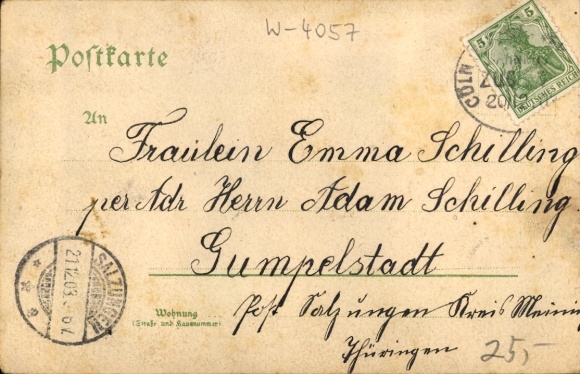 W-4057
Postkarte
5
DEUTSCHES REICH
CÖLN
ZUG
20/12
An
Fräulein Emma Schilling
per Adr Herrn Adam Schilling
Gumpelstadt
SALZUNGEN
21.12.03.
Wohnung
(Straße und Hausnummer)
Post Salzungen Kreis Meinin
Thüringen
25,-